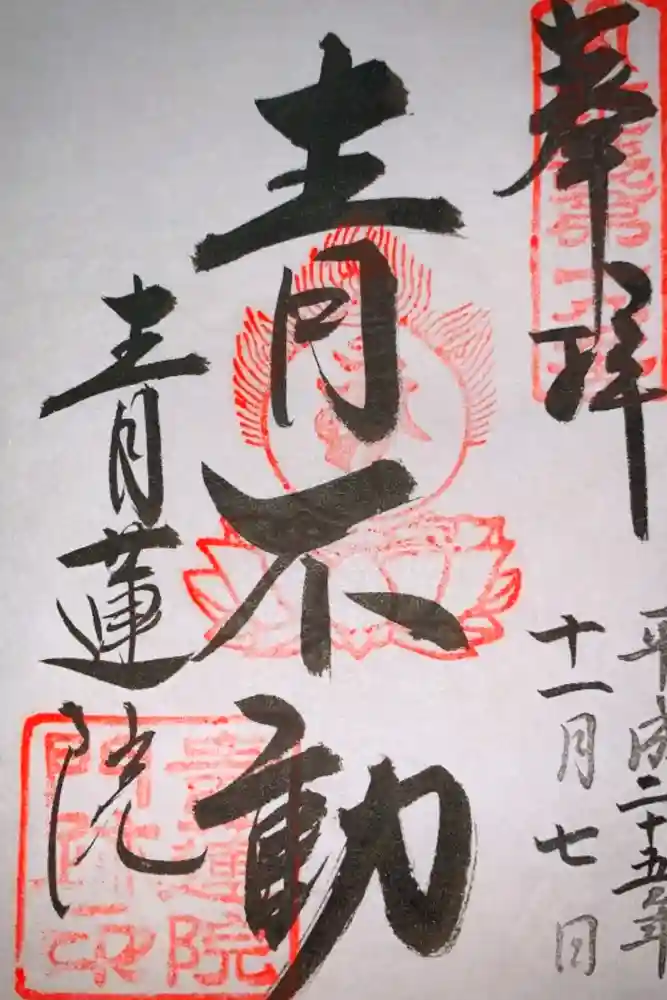 奉拝
平成二十五年
十一月七日
青不動
青蓮院
青蓮院
門跡印